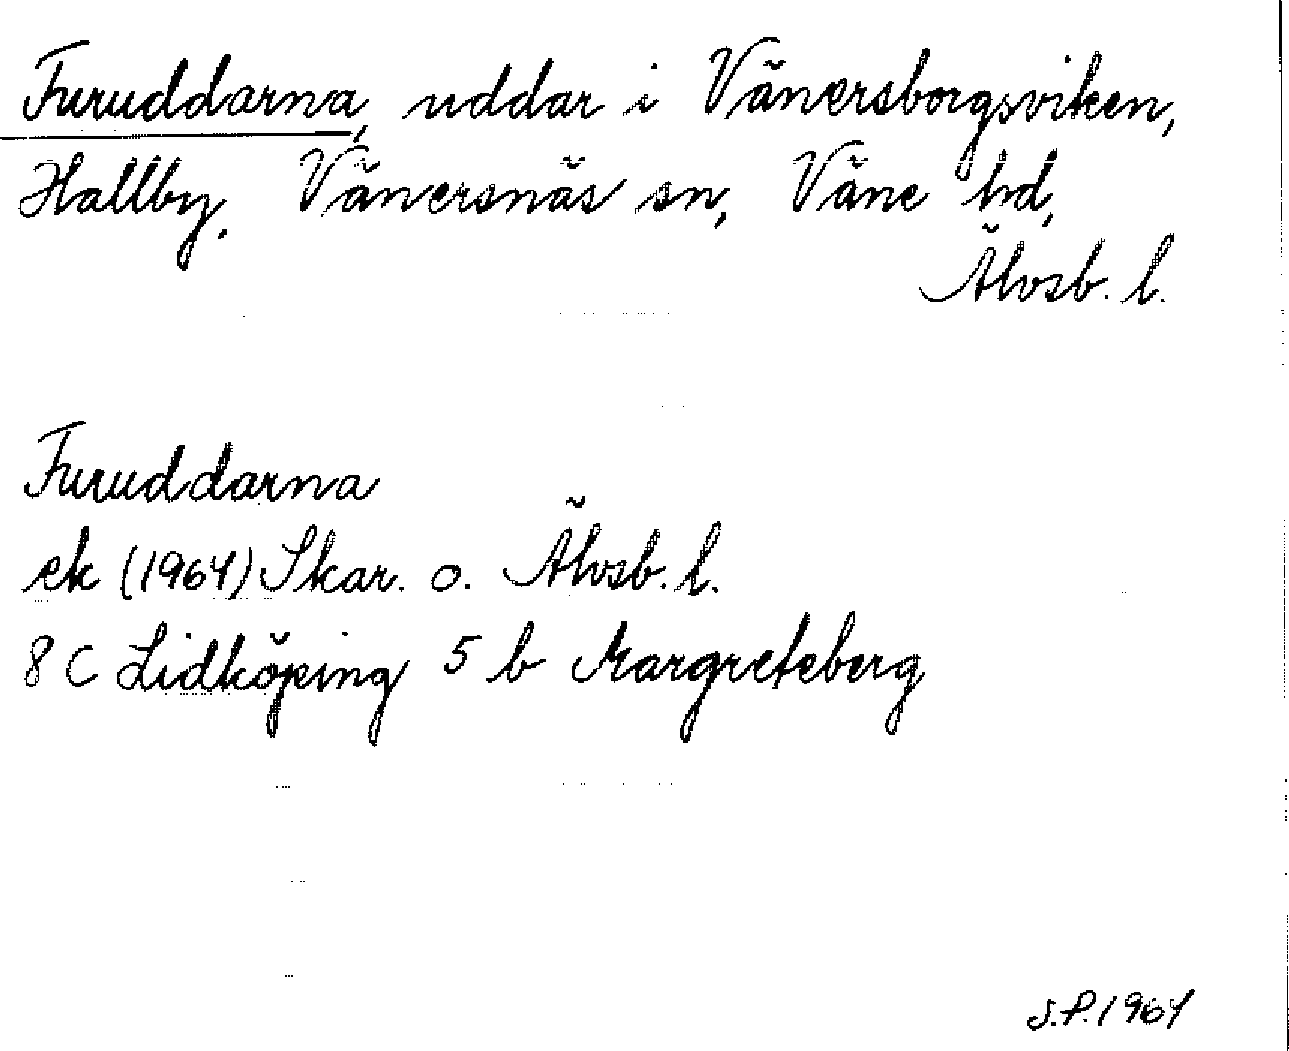 Furuddarna, uddar i Vänersborgsviken,
Hallby, Vänersnäs sn, Väne hd,
Älvsb. l.
Furuddarna
ek (1964) Skar. o. Älvsb. l.
8 C Lidköping 5 b Margreteberg
S.P. 1964